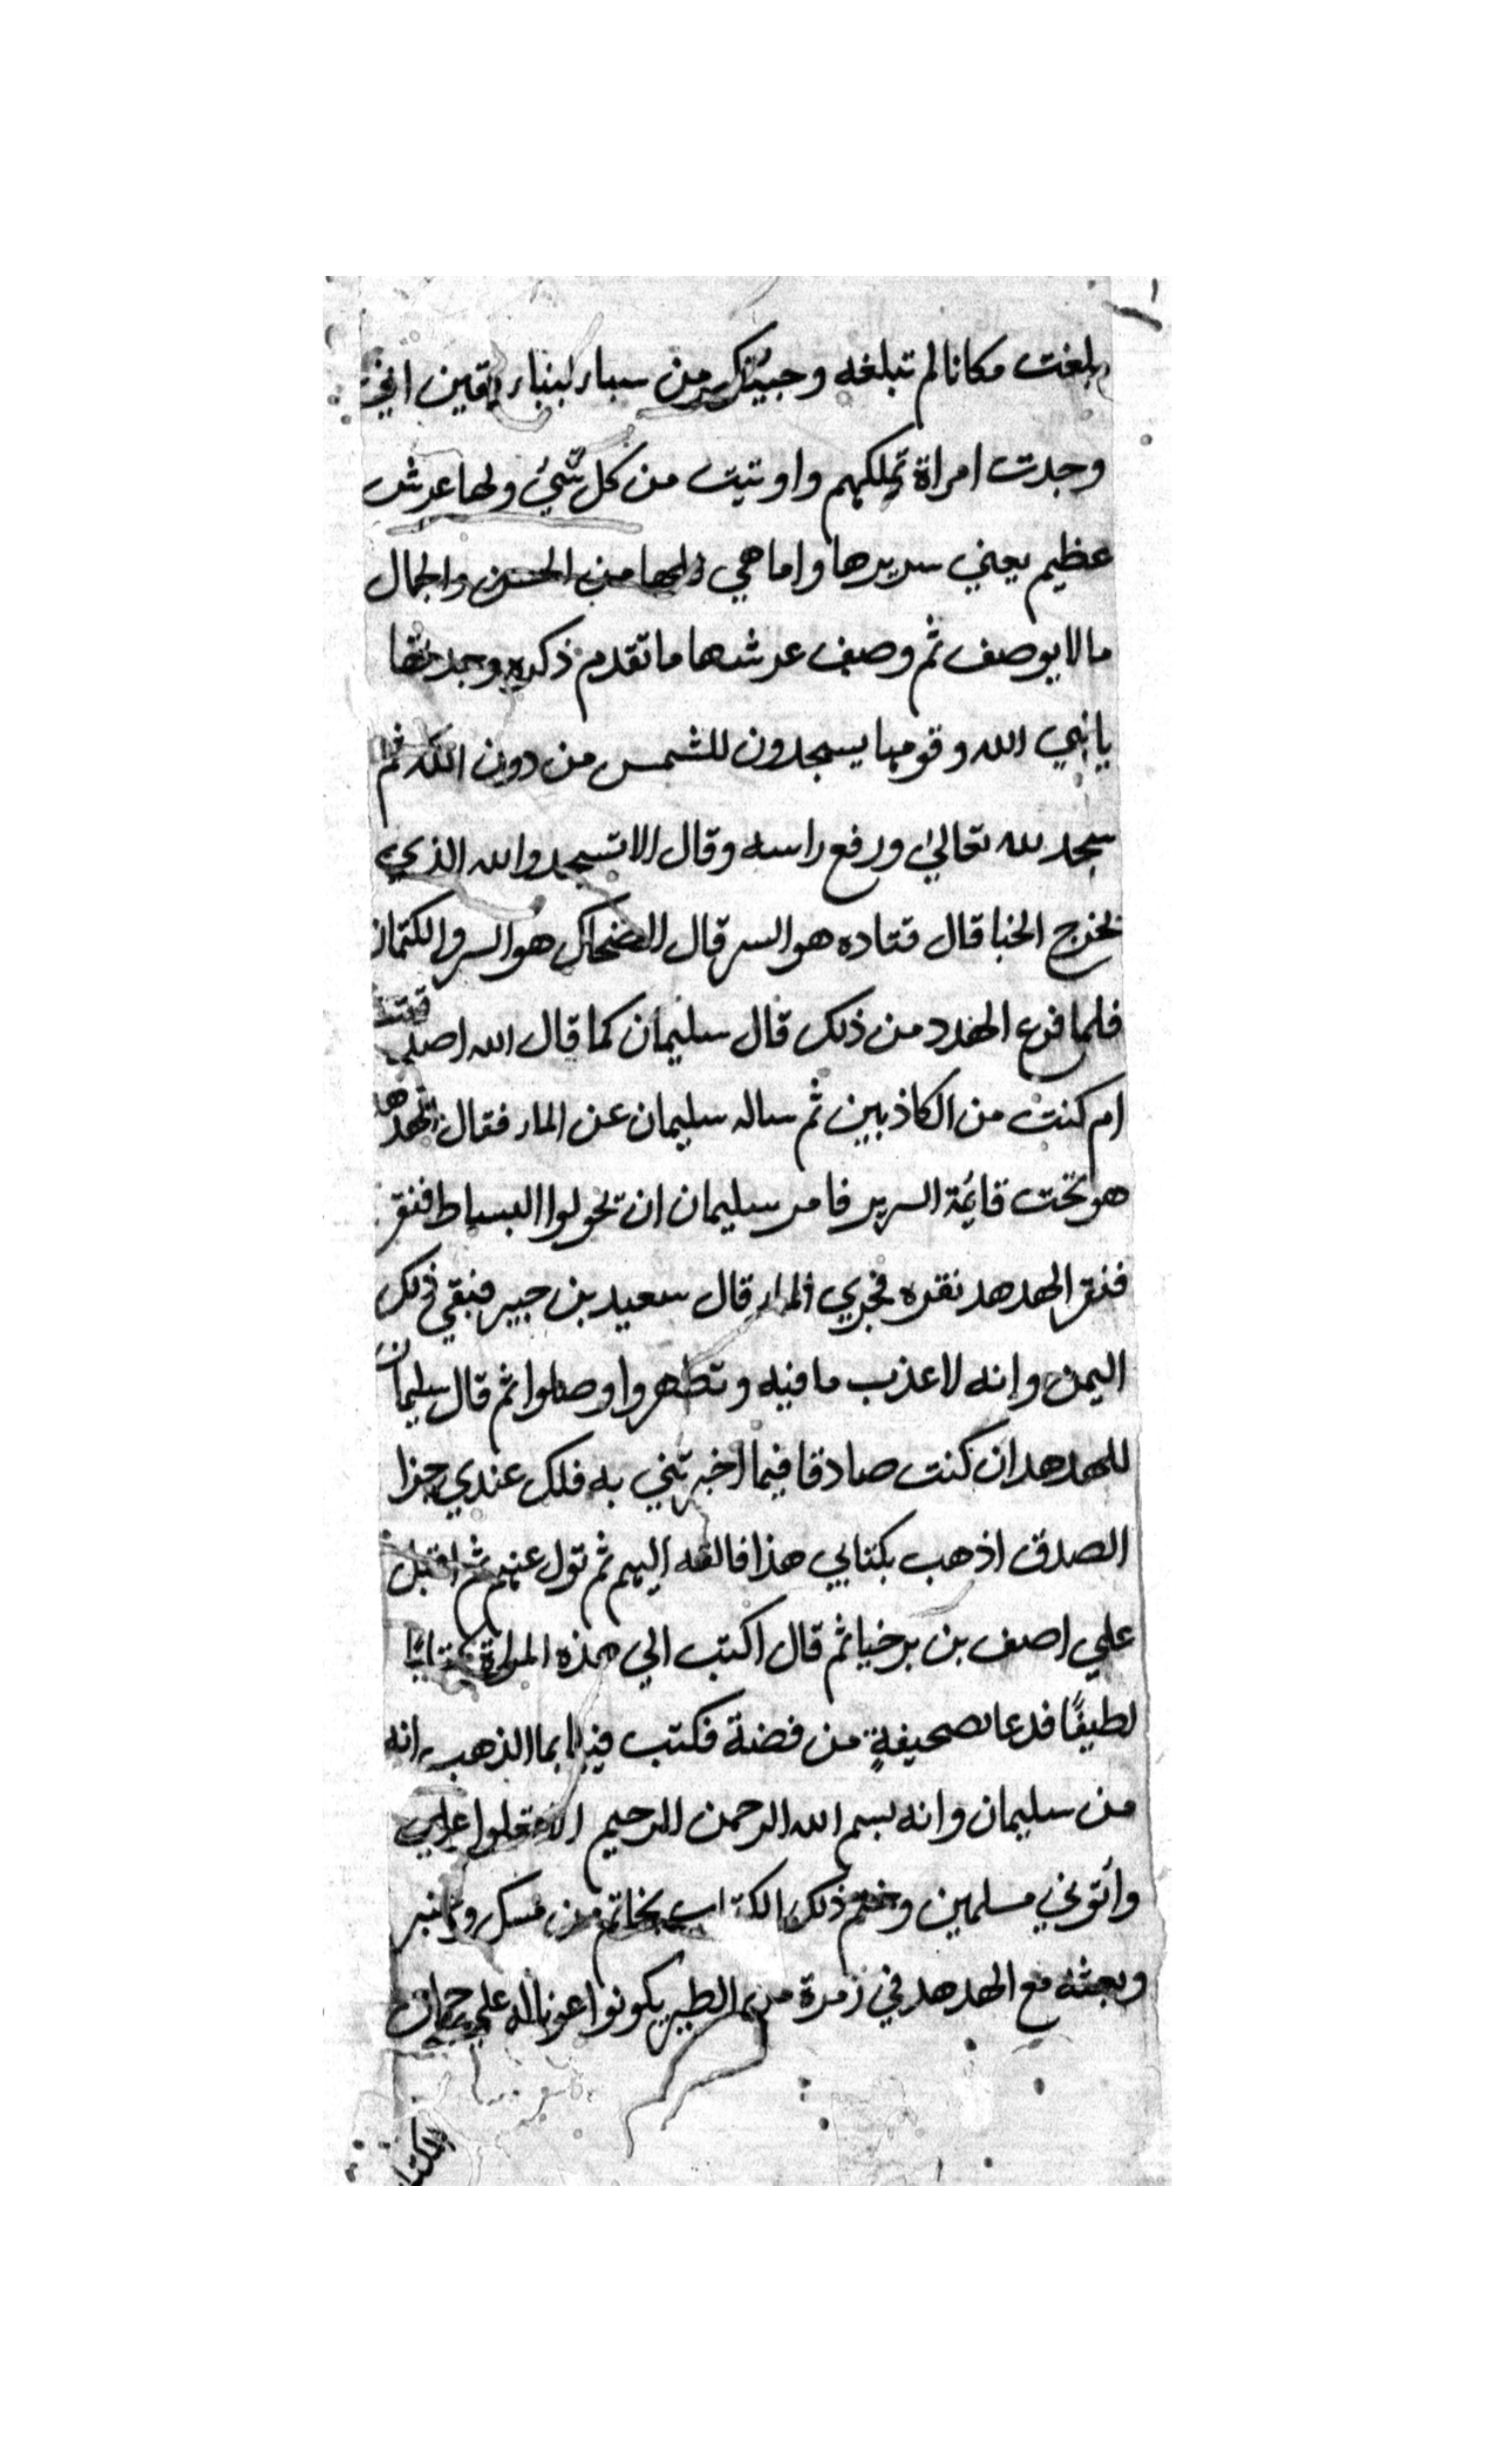 بلغت مكانا لم تبلغه وجيتك من سباء لبنباء يقين اني
وجدت امراة تملكهم واوتيت من كل شيء ولها عرش
عظيم يعني سريرها واما هي ولها من الحسن والجمال
مالا يوصف ثم وصف عرشها ما تقدم ذكره وجدتها
يا نبي الله وقومها يسجدون للشمس من دون الله ثم
سجد لله تعالي ورفع راسه وقال الا تسجدوا لله الذي
يخرج الخبا قال قتاده هو السر قال الضحاك هو السر والكتمان
فلما فرع الهدد من ذلك قال سليمان كما قال الله اصدقت
ام كنت من الكاذبين ثم ساله سليمان عن الماء فقال الهدهد
هو تحت قايمة السرير فامر سليمان ان تحولوا البساط فنقر
فنقر الهدهد نقره فجري الماء قال سعيد بن جبير فبقي ذلك
اليمن وانه لاعذب ما فيه وتطهروا وصلوا ثم قال سليمان
للهدهد ان كنت صادقا فيما اخبرتني به فلك عندي جزا
الصدق اذهب بكتابي هذا فالقه اليهم ثم تول عنهم ثم اقبل
علي اصف بن برخيا ثم قال اكتب الي هذه المراة كتابا
لطيفًا فدعا بصحيفةٍ من فضة فكتب فيها بما الذهب انه
من سليمان وانه بسم الله الرحمن الرحيم الا تعلوا علي
وأتوني مسلمين وختم ذلك الكتاب بخاتم من مسك وعنبر
وبعثه مع الهدهد في زمرة من الطير يكونوا عونا له علي حمل
الكتاب